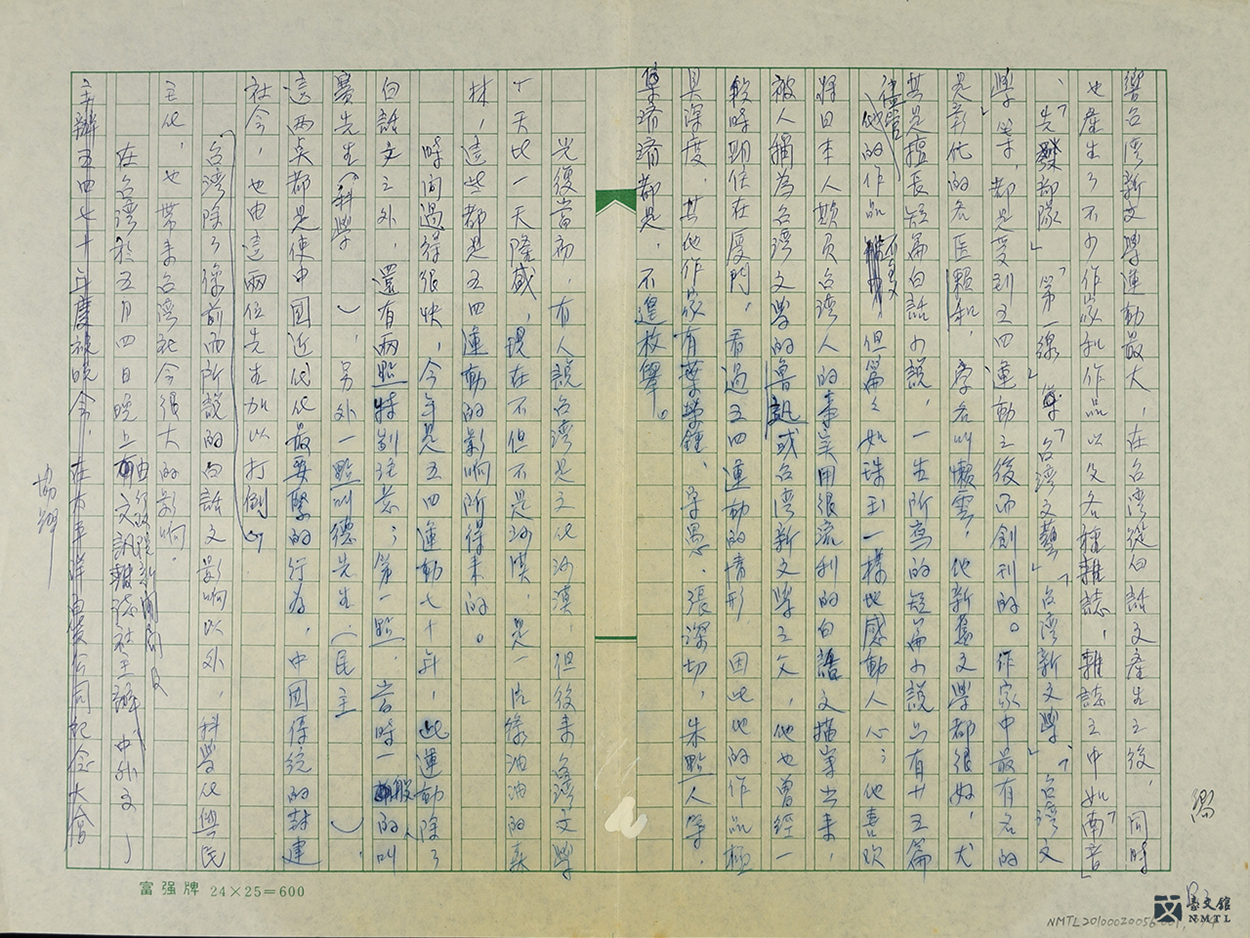 響台湾新文學運動最大，在台湾從白話文產生之後，同時
也產生了不少作家和作品以及各種雜誌，雜誌之中如「南音」
、「先發部隊」「第一線」「台湾文藝」「台湾新文學」、「台湾文
學」等，都是受到五四運動之後而創刊的。作家中最有名的
是彰化的名医賴和，字名叫懶雲，他新舊文學都很好，尤
其是擅長短篇白話小說，一生所寫的短篇小說只有廿五篇
儘管他的作品不多，但篇之如珠玉一樣地感動人心；他喜欢
將日本人欺負台湾人的事実用很流利的白話文描寫出來，
被人稱為台湾文學的魯訊或台湾新文學之父，他也曾經一
較時期住在厦門，看過五四運動的情形 因此他的作品極
具深度，其他作家有葉榮鐘、 張深切，朱點人等，
集濟濟都是，不遑枚舉。
光復當初，有人說台湾是文化沙漠，但後來台湾文學
一天比一天隆盛，現在不但不是沙漠，是一片綠油油的森
林，這些都是五四運動的影响所得來的。
時间過得很快，今年是五四運動七十年，此運動除了
白話文之外，還有兩點特別注意；第一點，當時一般的人叫
賽先生（科學），另外一點叫德先生（民主）
這兩点都是使中國近代化最要緊的行為，中國傳統的封建
社会，也由這兩位先生加以打倒的
台湾除了像前面所說的白話文影响以外，科學化與民
主化，也帶來台湾和今很大的影响
在台湾於五月四日晚上由行政院新聞局及文訊雜誌社主辦 中外文
主辦五四七十年慶祝晚会，在太平洋 公司記念大會
富强牌 24×25=600
NMTL20100020056
臺文館
NMTL